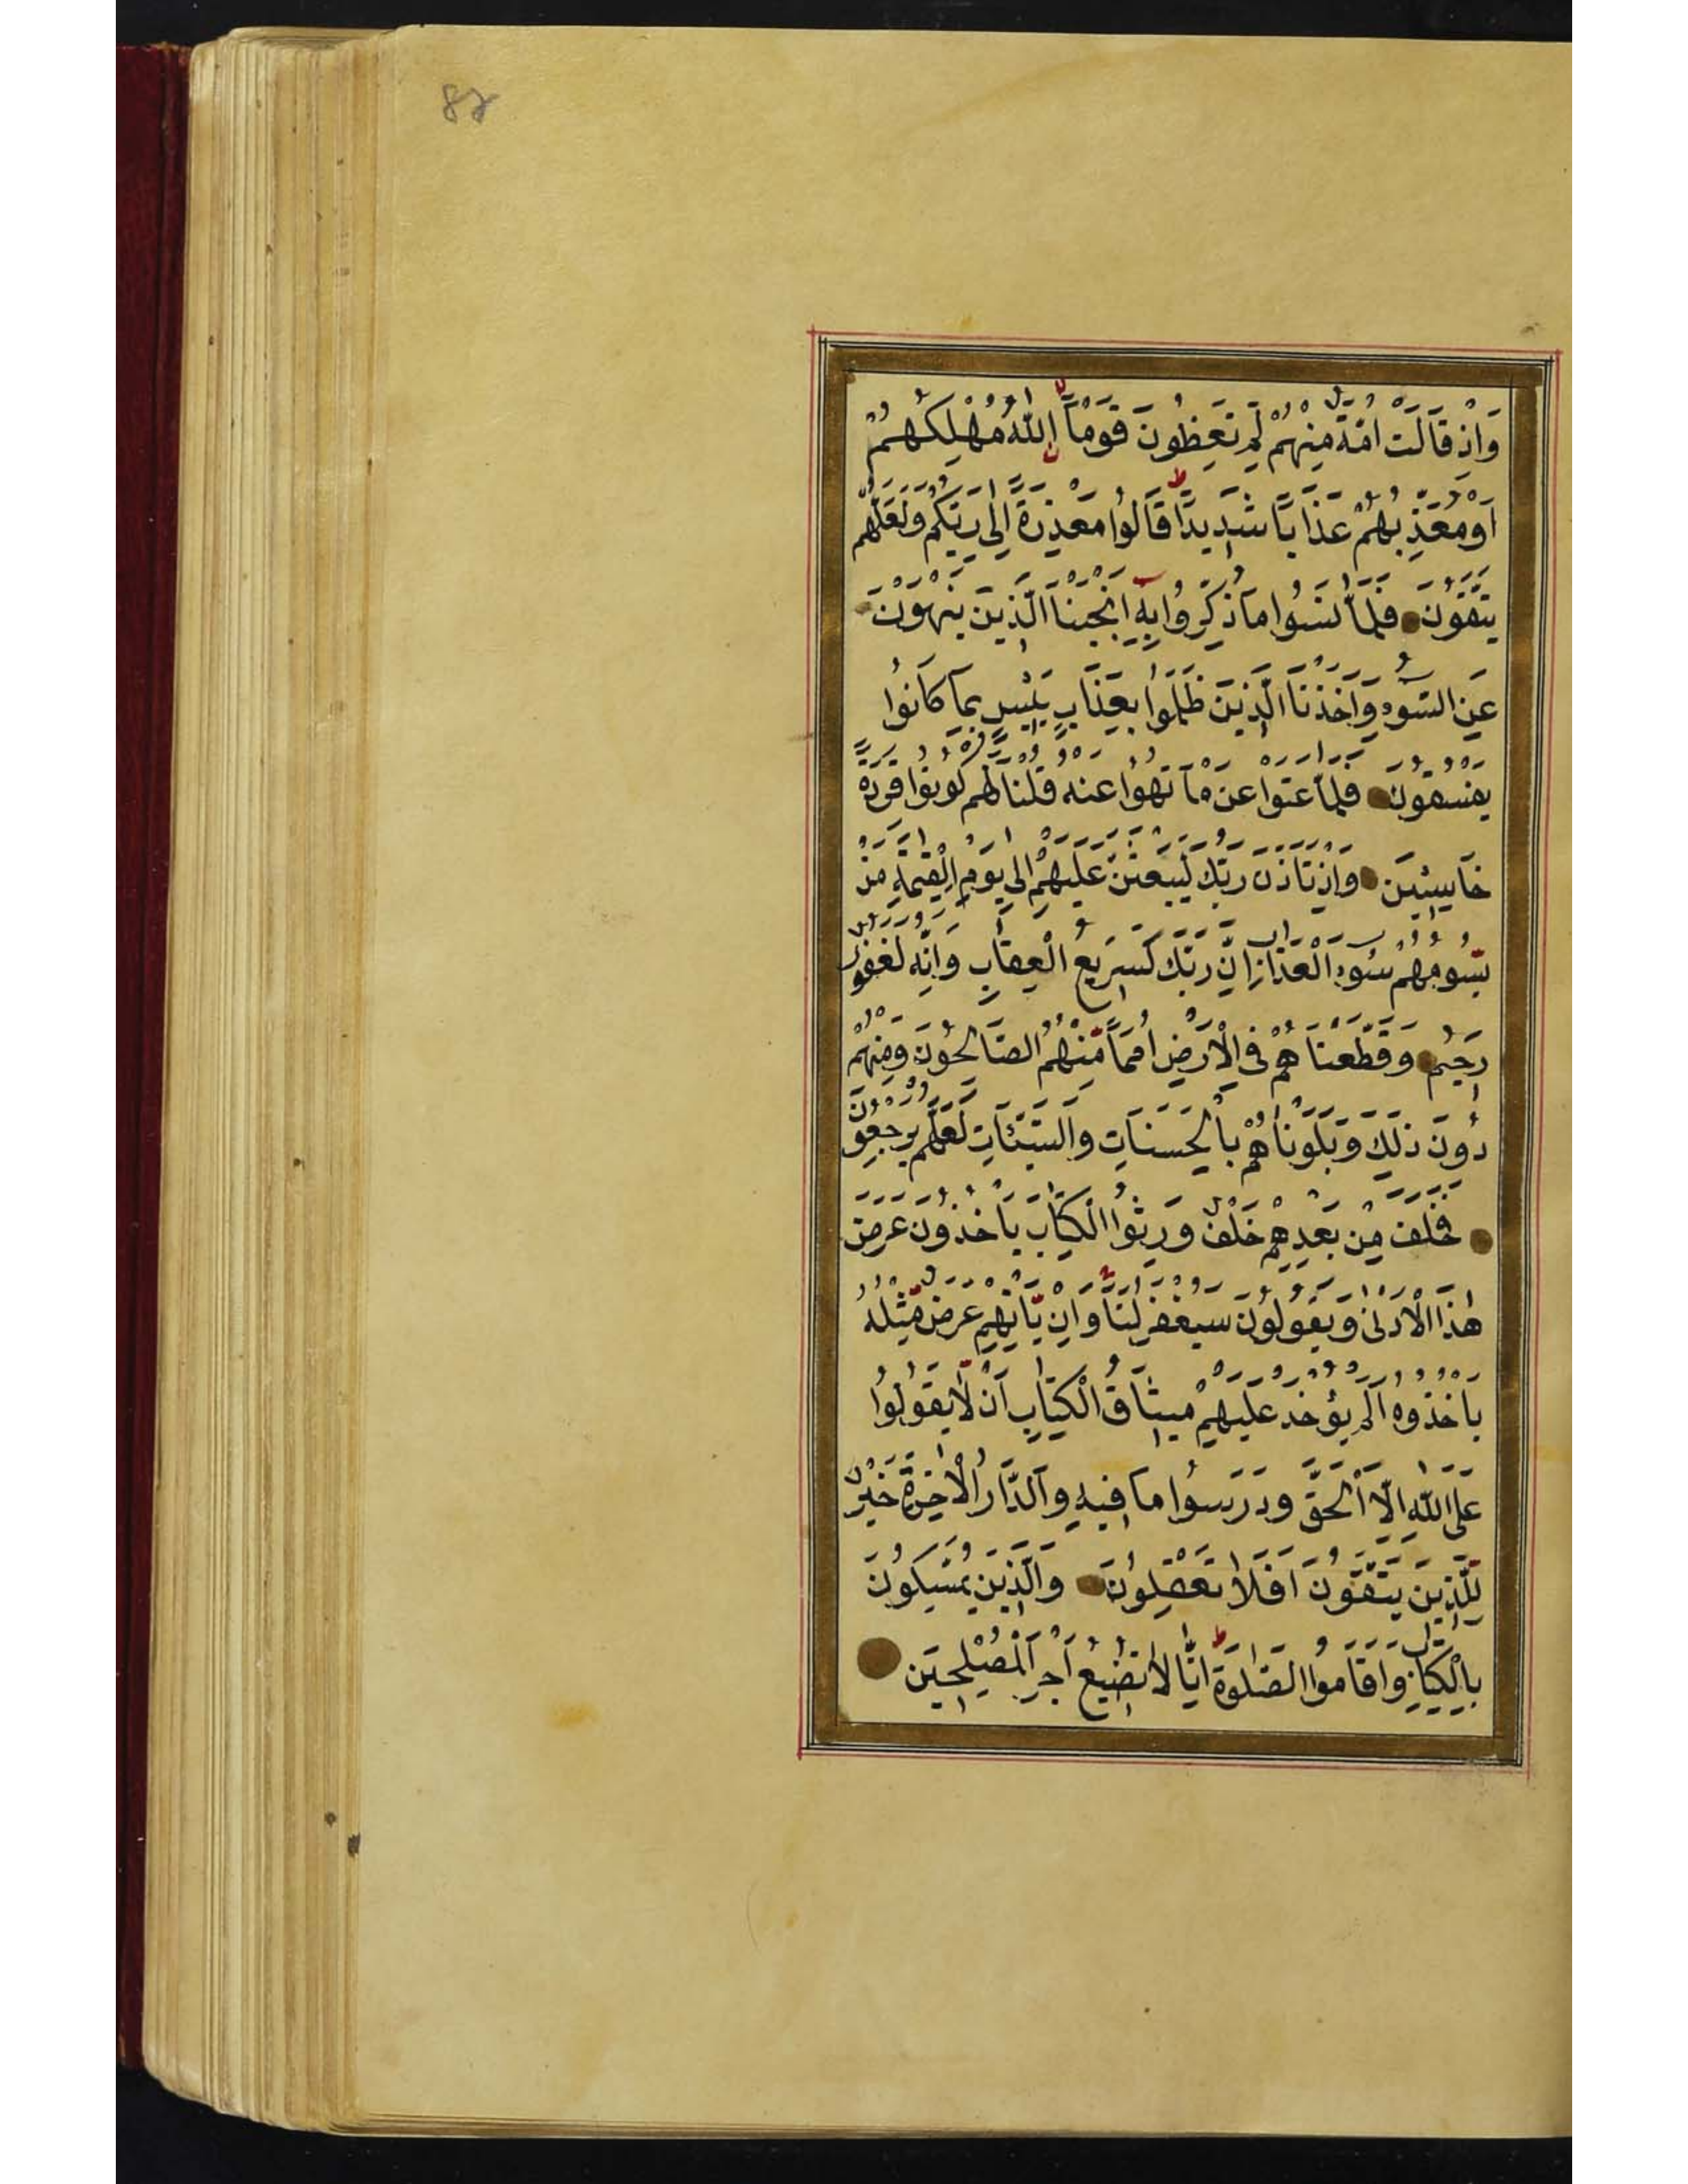 87
وَاِذْ قَالَتْ اُمَّةٌ مِنْهُمْ لِمَ تَعِظُونَ قَوْمًا اللّٰهُ مُهْلِكُهُمْ
اَوْ مُعَذِّبُهُمْ عَذَابًا شَدِيدًا قَالُوا مَعْذِرَةً اِلٰى رَبِّكُمْ وَلَعَلَّهُمْ
يَتَّقُونَ فَلَمَّا نَسُوا مَا ذُكِّرُوا بِهٖ اَنْجَيْنَا الَّذِينَ يَنْهَوْنَ
عَنِ السُّوۤءِ وَاَخَذْنَا الَّذِينَ ظَلَمُوا بِعَذَابٍ بَئِيسٍ بِمَا كَانُوا
يَفْسُقُونَ فَلَمَّا عَتَوْا عَنْ مَا نُهُوا عَنْهُ قُلْنَا لَهُمْ كُونُوا قِرَدَةً
خَاسِئِينَ وَاِذْ تَاَذَّنَ رَبُّكَ لَيَبْعَثَنَّ عَلَيْهِمْ اِلٰى يَوْمِ الْقِيٰمَةِ مَنْ
يَسُومُهُمْ سُوۤءَ الْعَذَابِ اِنَّ رَبَّكَ لَسَرِيعُ الْعِقَابِ وَاِنَّهُ لَغَفُورٌ
رَحِيمٌ وَقَطَّعْنَاهُمْ فِى الْاَرْضِ اُمَمًا مِنْهُمُ الصَّالِحُونَ وَمِنْهُمْ
دُونَ ذٰلِكَ وَبَلَوْنَاهُمْ بِالْحَسَنَاتِ وَالسَّيِّئَاتِ لَعَلَّهُمْ يَرْجِعُونَ
فَخَلَفَ مِنْ بَعْدِهِمْ خَلْفٌ وَرِثُوا الْكِتَابَ يَاْخُذُونَ عَرَضَ
هٰذَا الْاَدْنٰى وَيَقُولُونَ سَيُغْفَرُ لَنَا وَاِنْ يَاْتِهِمْ عَرَضٌ مِثْلُهُ
يَاْخُذُوهُ اَلَمْ يُؤْخَذْ عَلَيْهِمْ مِيثَاقُ الْكِتَابِ اَنْ لَا يَقُولُوا
عَلَى اللّٰهِ اِلَّا الْحَقَّ وَدَرَسُوا مَا فِيهِ وَالدَّارُ الْاٰخِرَةُ خَيْرٌ
لِلَّذِينَ يَتَّقُونَ اَفَلَا تَعْقِلُونَ وَالَّذِينَ يُمَسِّكُونَ
بِالْكِتَابِ وَاَقَامُوا الصَّلٰوةَ اِنَّا لَا نُضِيعُ اَجْرَ الْمُصْلِحِينَ